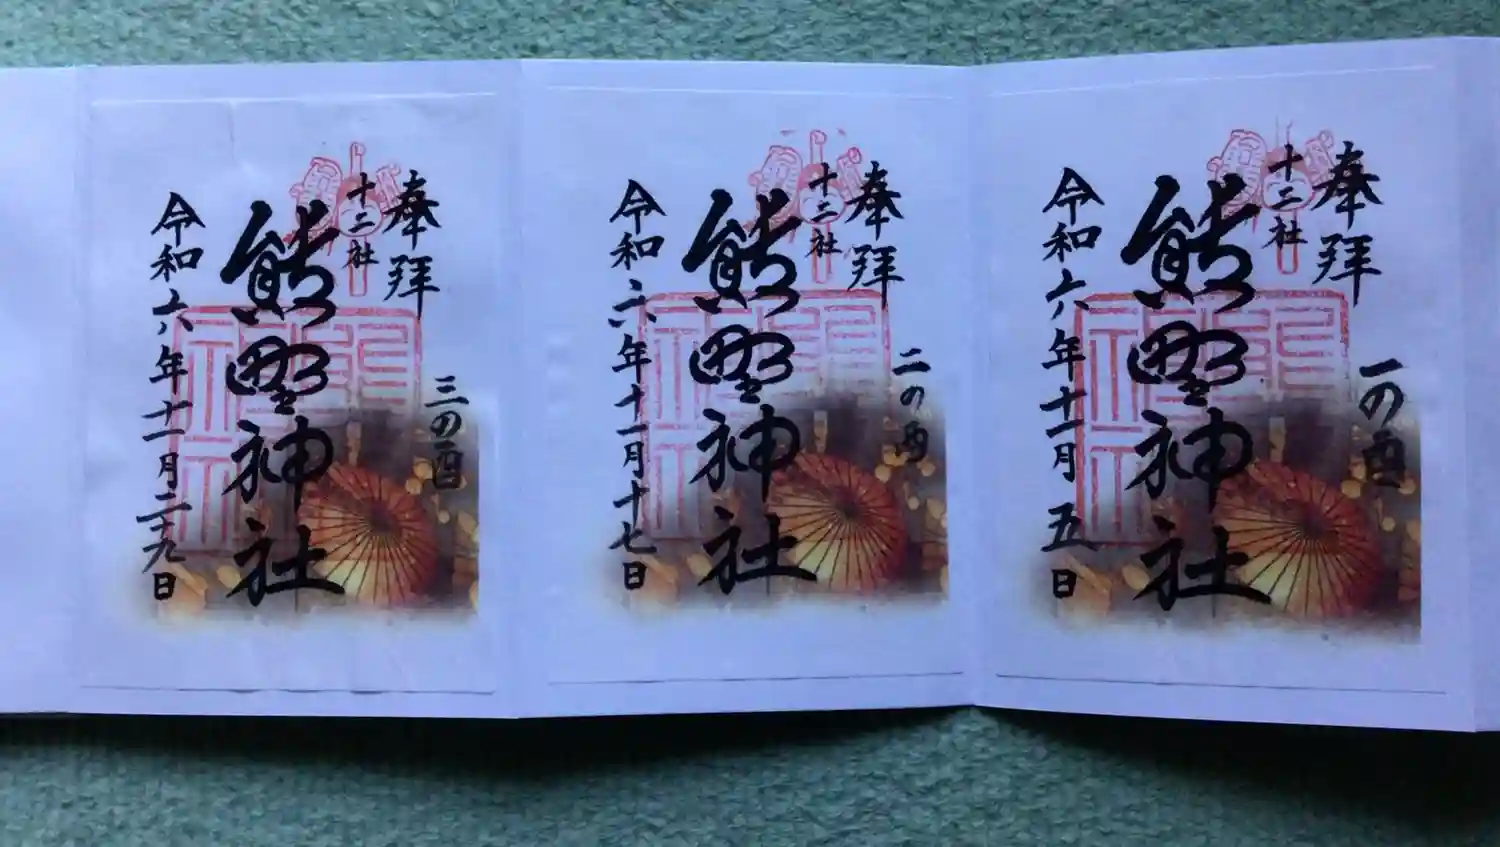 奉拝
一の酉
十二社
熊野神社
令和六年十一月五日
奉拝
二の酉
十二社
熊野神社
令和六年十一月十七日
奉拝
三の酉
十二社
熊野神社
令和六年十一月二十九日